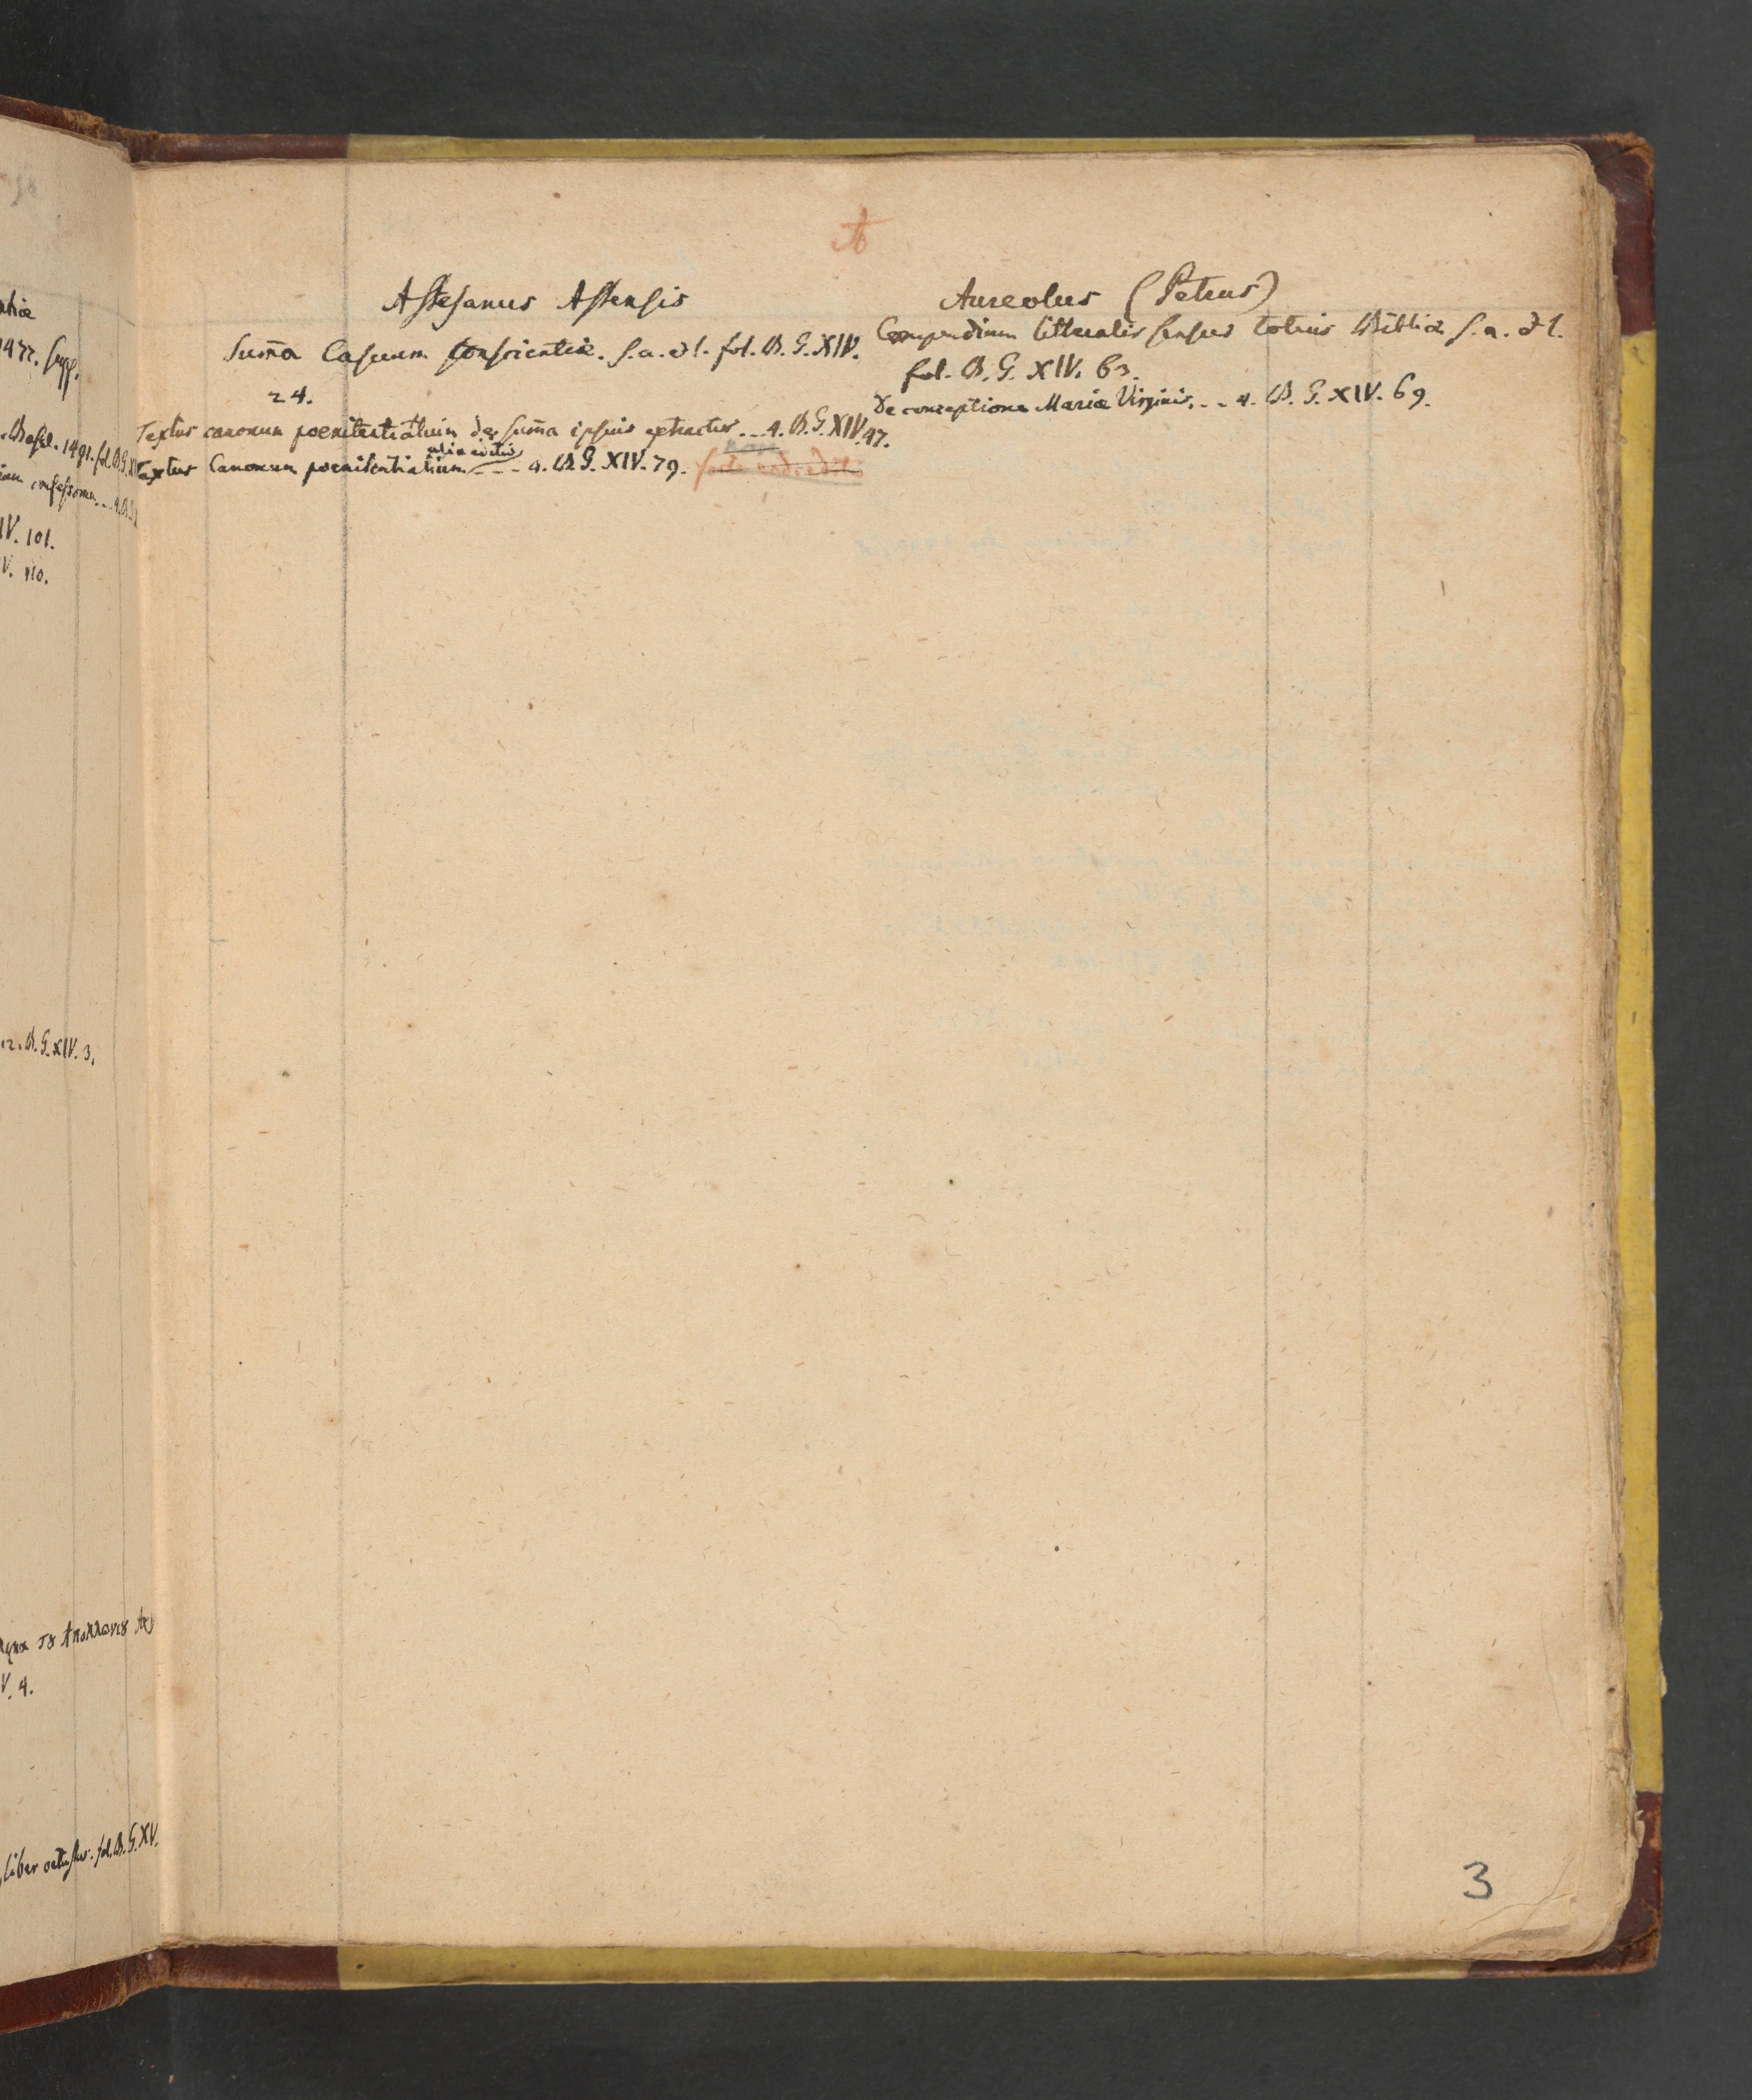 A
Astesanus Astensis
Suma Casuum Conscientiæ. s. a. & l. fol. B. G. XIV.
24.
Textus canonum poenitentialium de suma ipsius extractus . . . 4. B. G. XIV. 47.
alia editio
Textus Canonum poenitentialium . . . 4. B. G. XIV. 79.
Aureolus (Petrus)
Compendium litteralis sensus totius Bibliæ s. a. & l.
fol. B. G. XIV. 63.
De conceptione Mariæ Virginis. . . 4. B. G. XIV. 69.
3
1477.
Basel. 1491. fol. B. G. XIV
confessorum . . 4. B.
IV. 101.
V. 110.
12. B. G. XIV. 3.
V. 4.
liber fol. B. G. XV.